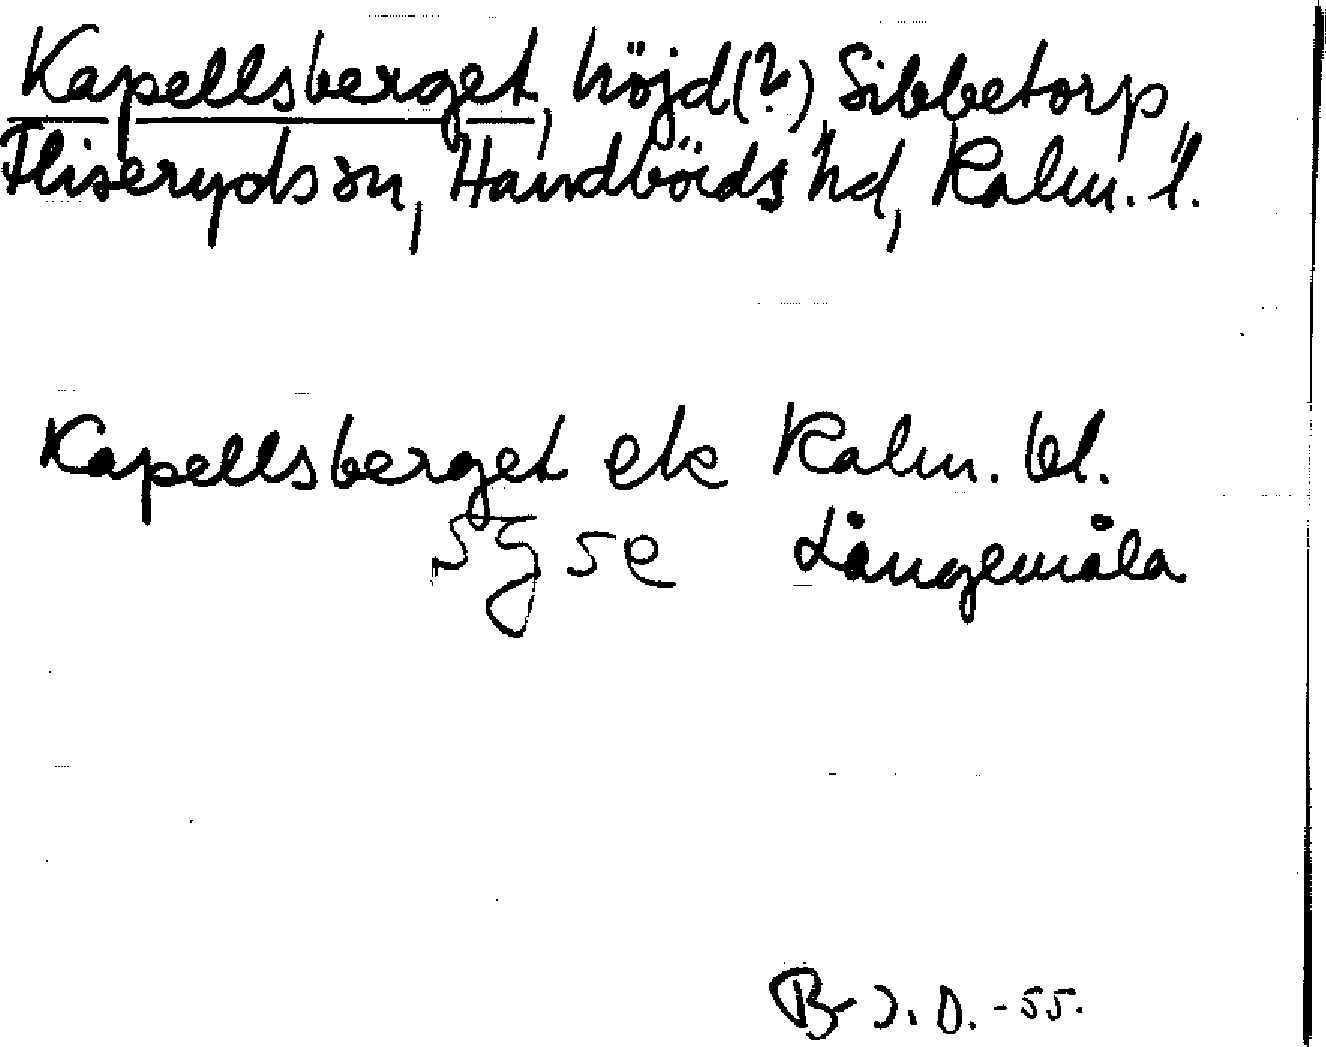 Kapellsberget, höjd(?) Sibbetorp,
Fliseryds sn, Handbörds hd, Kalm. l.
Kapellsberget ek Kalm. bl.
5g 5e Långemåla
Br J. D. -55.